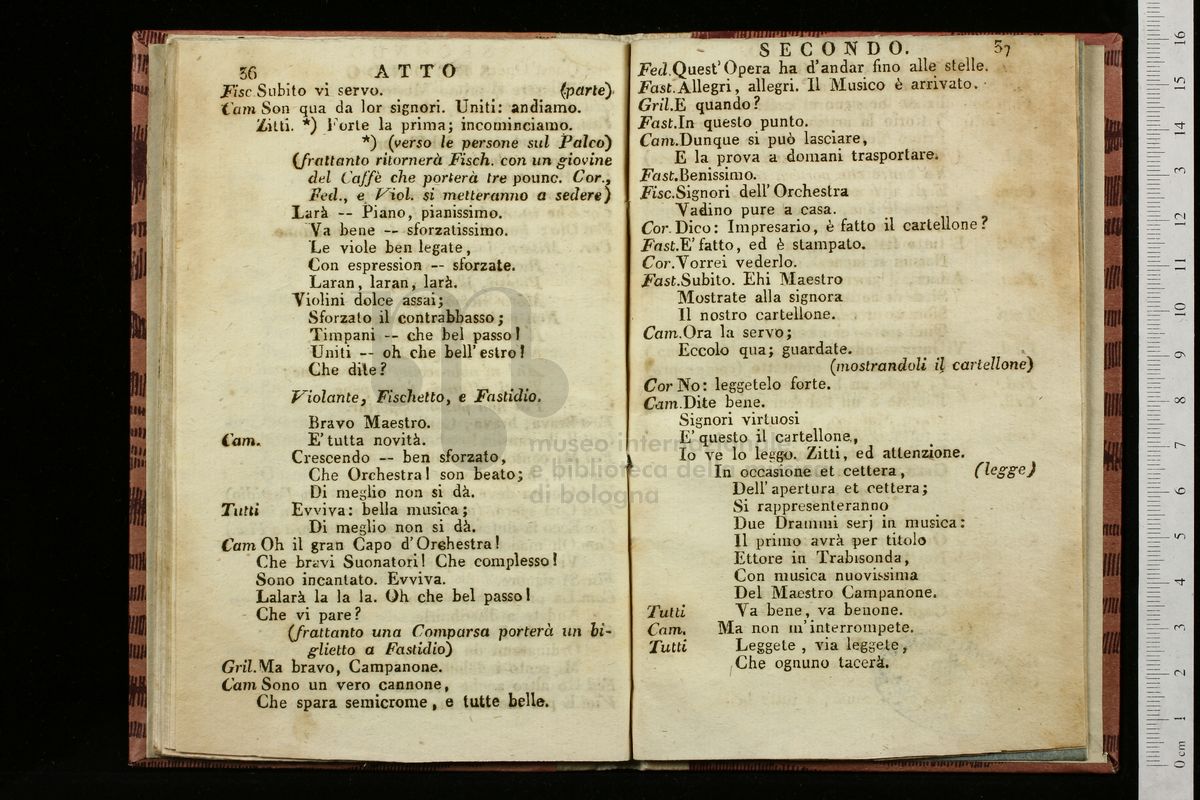 36
ATTO
Fisc Subito vi servo. (parte)
Cam Son qua da lor signori. Uniti: andiamo.
Zitti. *) Forte la prima; incominciamo.
*) (verso le persone sul Palco)
(frattanto ritornerà Fisch. con un giovine
del Caffè che porterà tre pounc. Cor.,
Fed., e Viol. si metteranno a sedere)
Larà -- Piano, pianissimo.
Va bene -- sforzatissimo.
Le viole ben legate,
Con espression -- sforzate.
Laran, laran, larà.
Violini dolce assai;
Sforzato il contrabbasso;
Timpani -- che bel passo!
Uniti -- oh che bell'estro!
Che dite?
Violante, Fischetto, e Fastidio.
Bravo Maestro.
Cam. E' tutta novità.
Crescendo -- ben sforzato,
Che Orchestra! son beato;
Di meglio non si dà.
Tutti Evviva: bella musica;
Di meglio non si dà.
Cam Oh il gran Capo d'Orchestra!
Che bravi Suonatori! Che complesso!
Sono incantato. Evviva.
Lalarà la la la. Oh che bel passo!
Che vi pare?
(frattanto una Comparsa porterà un bi-
glietto a Fastidio)
Gril. Ma bravo, Campanone.
Cam Sono un vero cannone,
Che spara semicrome, e tutte belle.
SECONDO.
37
Fed. Quest'Opera ha d'andar fino alle stelle.
Fast. Allegri, allegri. Il Musico è arrivato.
Gril. E quando?
Fast. In questo punto.
Cam. Dunque si può lasciare,
E la prova a domani trasportare.
Fast. Benissimo.
Fisc. Signori dell'Orchestra
Vadino pure a casa.
Cor. Dico: Impresario, è fatto il cartellone?
Fast. E' fatto, ed è stampato.
Cor. Vorrei vederlo.
Fast. Subito. Ehi Maestro
Mostrate alla signora
Il nostro cartellone.
Cam. Ora la servo;
Eccolo qua; guardate.
(mostrandoli il cartellone)
Cor No: leggetelo forte.
Cam. Dite bene.
Signori virtuosi
E' questo il cartellone,
Io ve lo leggo. Zitti, ed attenzione.
In occasione et cettera, (legge)
Dell'apertura et cettera;
Si rappresenteranno
Due Drammi serj in musica:
Il primo avrà per titolo
Ettore in Trabisonda,
Con musica nuovissima
Del Maestro Campanone.
Tutti Va bene, va benone.
Cam. Ma non m'interrompete.
Tutti Leggete, via leggete,
Che ognuno tacerà.
museo internazionale
e biblioteca della musica
di bologna
0 cm 1 2 3 4 5 6 7 8 9 10 11 12 13 14 15 16